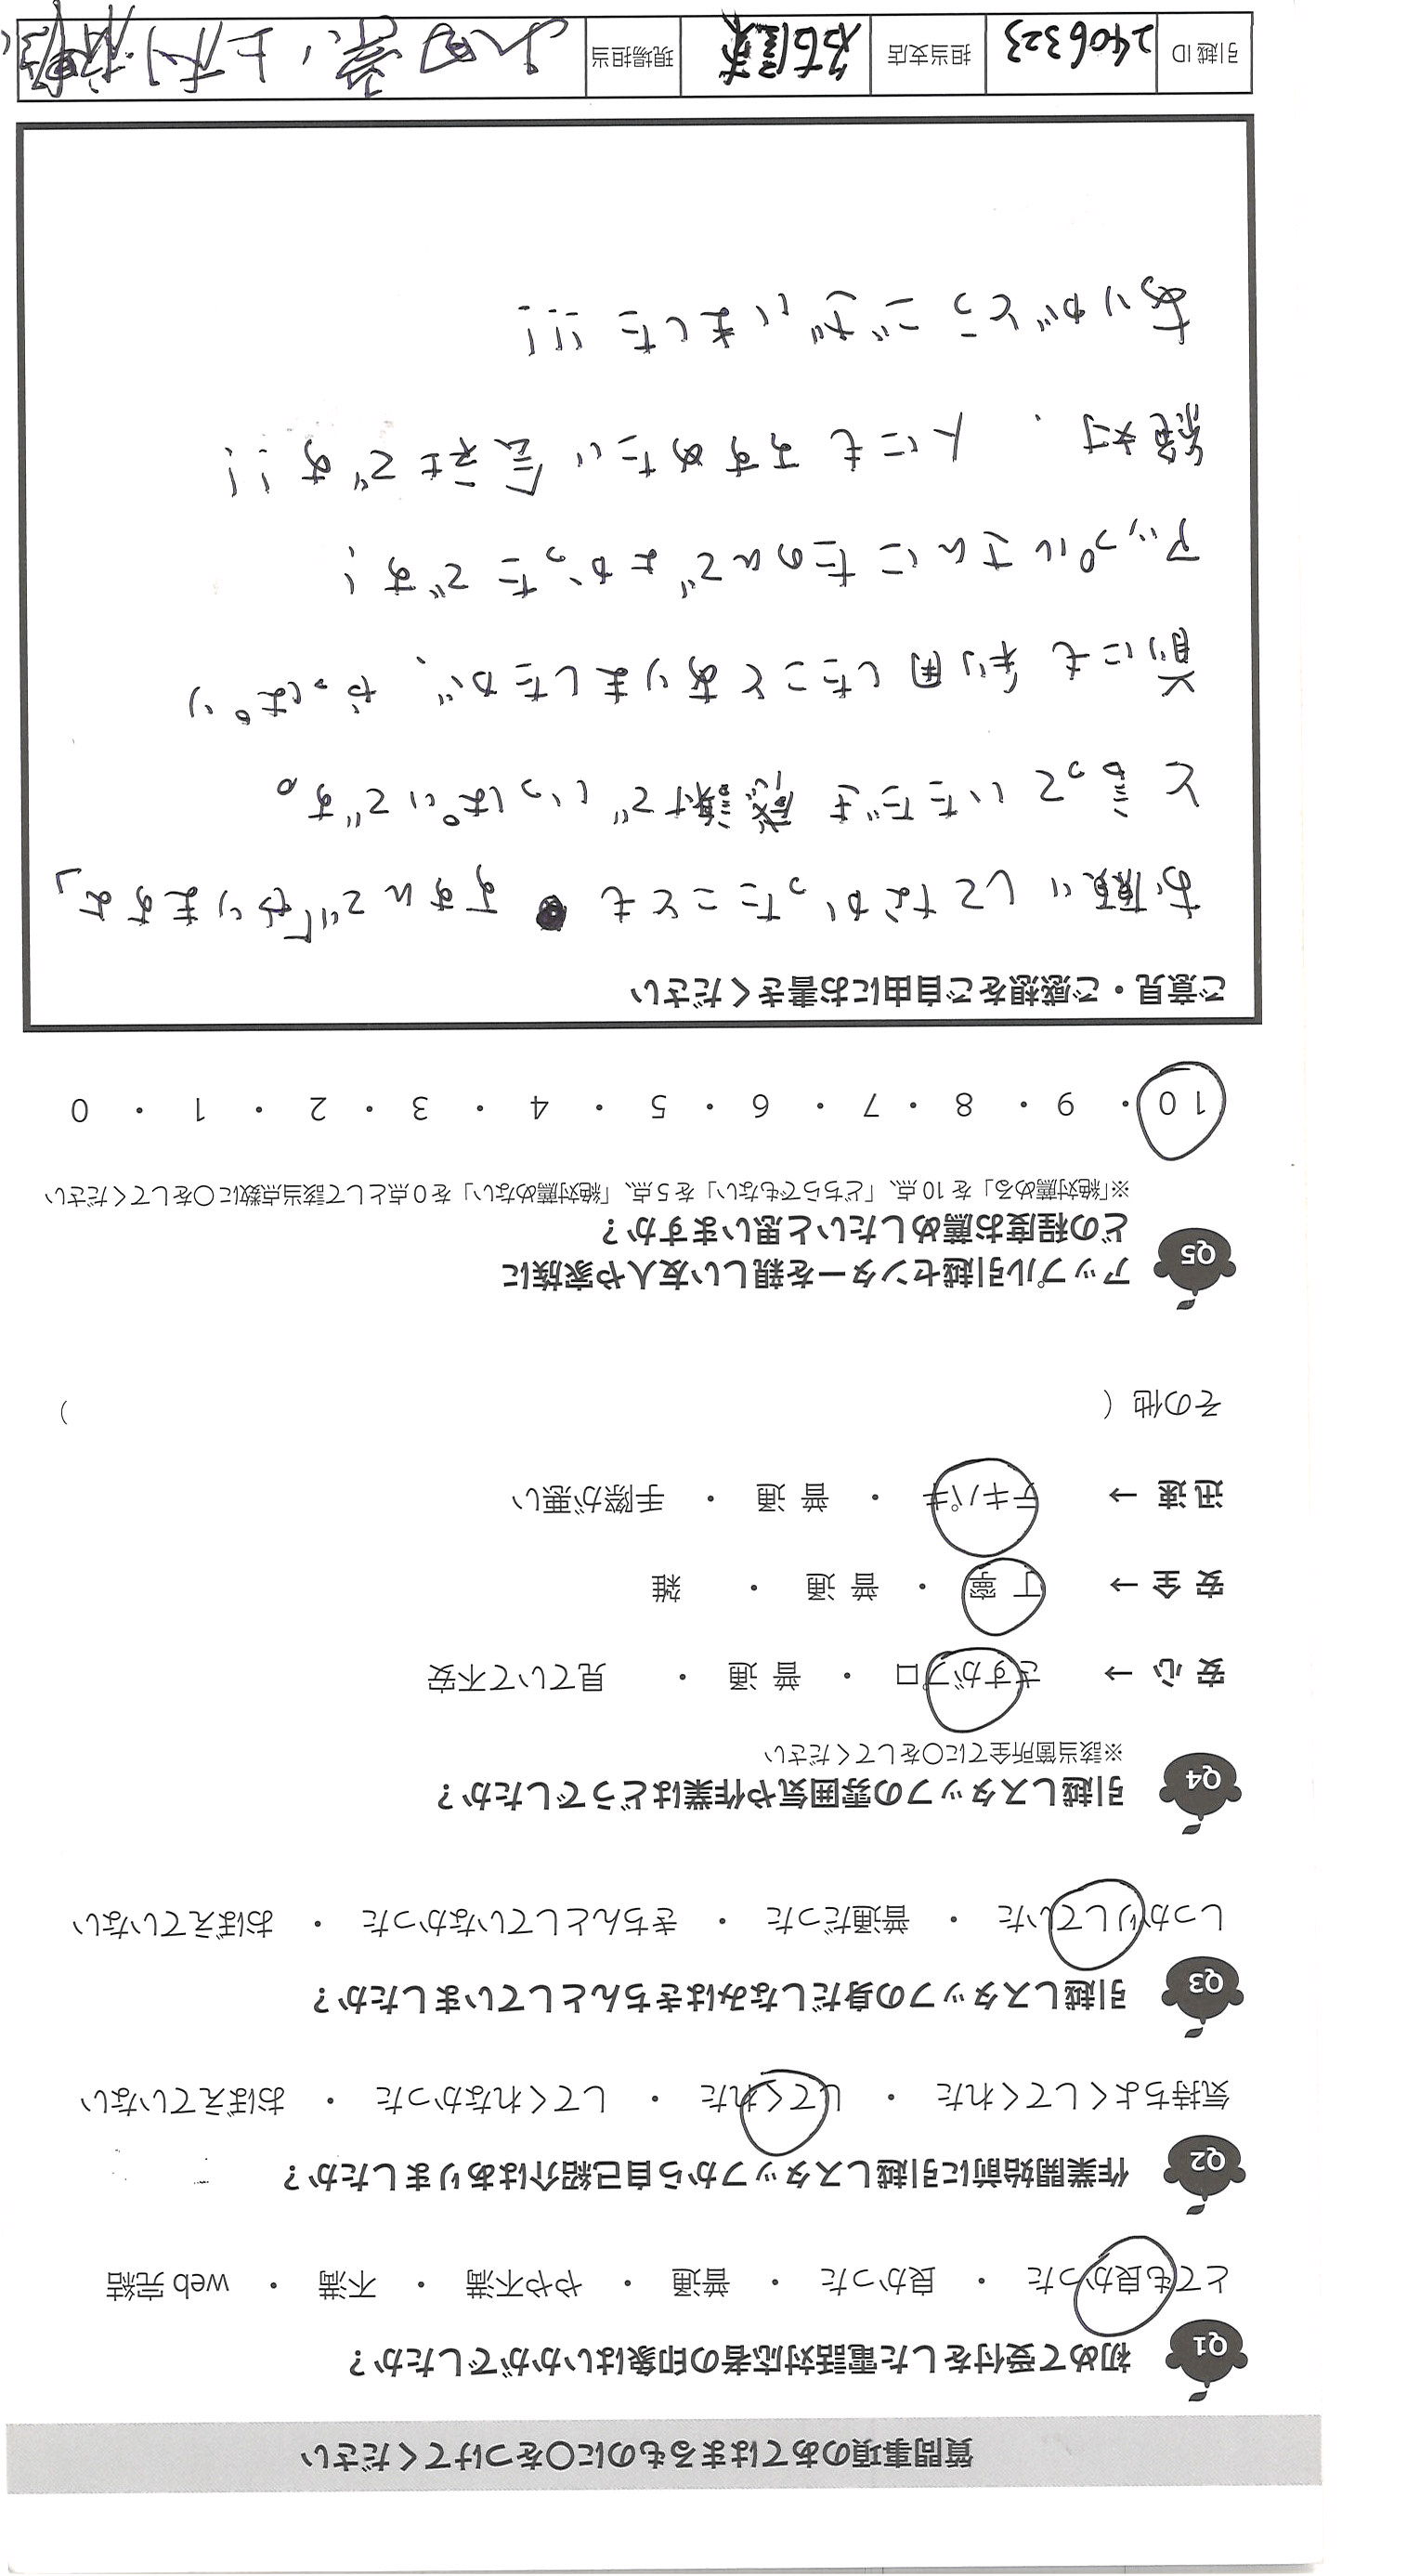 質問事項のあてはまるものに〇をつけてください
Q1 初めて受付をした電話対応者の印象はいかがでしたか？
とても良かった ・ 良かった ・ 普通 ・ やや不満 ・ 不満 ・ web 完結
Q2 作業開始前に引越しスタッフから自己紹介はありましたか？
気持ちよくしてくれた ・ してくれた ・ してくれなかった ・ おぼえていない
Q3 引越しスタッフの身だしなみはきちんとしていましたか？
しっかりしていた ・ 普通だった ・ きちんとしていなかった ・ おぼえていない
Q4 引越しスタッフの雰囲気や作業はどうでしたか？
※該当箇所全てに〇をしてください
安心 → さすがプロ ・ 普通 ・ 見ていて不安
安全 → 丁寧 ・ 普通 ・ 雑
迅速 → テキパキ ・ 普通 ・ 手際が悪い
その他（ ）
Q5 アップル引越センターを親しい友人や家族に
どの程度お薦めしたいと思いますか？
※「絶対薦める」を 10 点、「どちらでもない」を 5 点、「絶対薦めない」を 0 点として該当点数に〇をしてください
10 ・ 9 ・ 8 ・ 7 ・ 6 ・ 5 ・ 4 ・ 3 ・ 2 ・ 1 ・ 0
ご意見・ご感想をご自由にお書きください
お願いしてなかったことも すすんで「やりますよ」
と言っていただき感謝でいっぱいです。
前にも利用したことありましたが、やっぱり
アップルさんにたのんでよかったです！
絶対、人にもすすめたい会社です!!
ありがとうございました!!!
引越 ID 2406323 担当支店 名古屋 現場担当